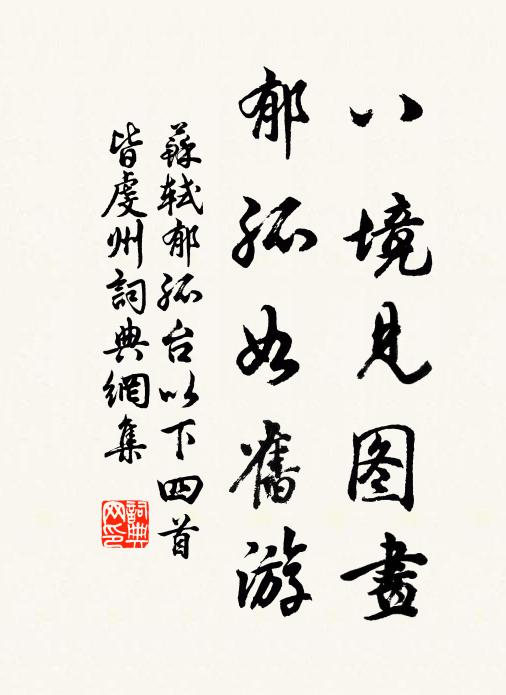 八境見图畫
郁孤如舊游
蘇軾郁孤台以下四首
皆虔州詞典網集
詞典
网印